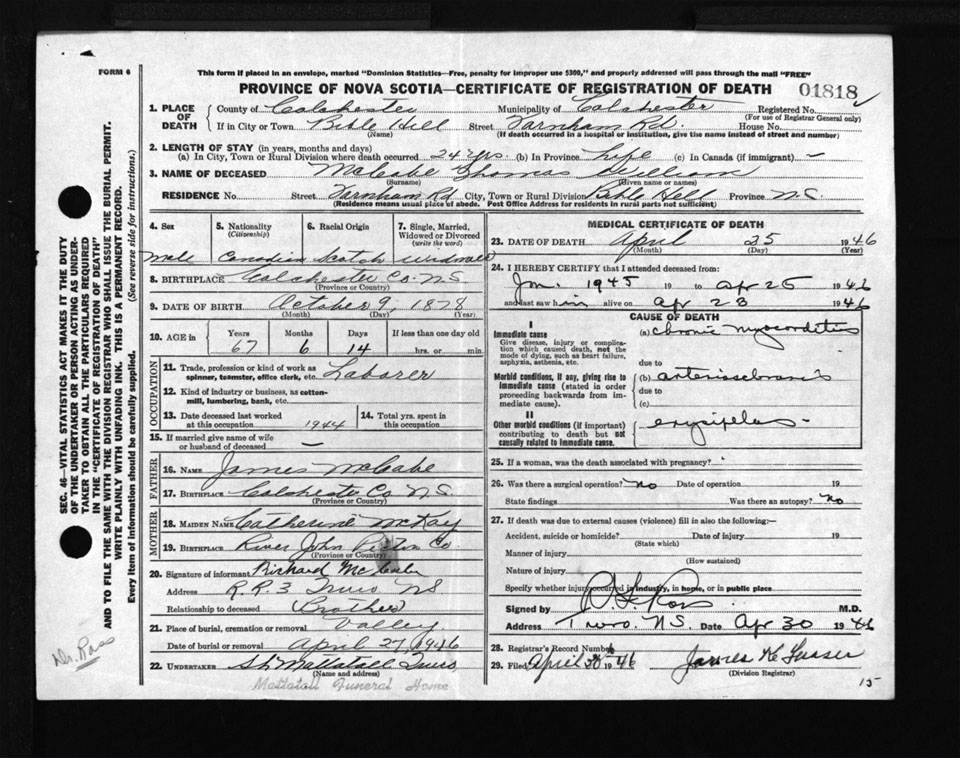 FORM 6
This form if placed in an envelope, marked "Dominion Statistics—Free, penalty for improper use $300," and properly addressed will pass through the mail "FREE"
PROVINCE OF NOVA SCOTIA—CERTIFICATE OF REGISTRATION OF DEATH
01818
1. PLACE OF DEATH
County of Colchester Municipality of Colchester Registered No.
(For use of Registrar General only)
If in City or Town Bible Hill Street Farnham Rd. House No.
(Name) (If death occurred in a hospital or institution, give the name instead of street and number)
2. LENGTH OF STAY (in years, months and days)
(a) In City, Town or Rural Division where death occurred 24 yrs. (b) In Province Life (c) In Canada (if immigrant) -
3. NAME OF DECEASED McCabe Thomas William
(Surname) (Given name or names)
RESIDENCE No. Street Farnham Rd City, Town or Rural Division Bible Hill Province N.S.
(Residence means usual place of abode. Post Office Address for residents in rural parts not sufficient)
4. Sex 5. Nationality (Citizenship) 6. Racial Origin 7. Single, Married, Widowed or Divorced (write the word)
Male Canadian Scotch Widowed
8. BIRTHPLACE Colchester Co. N.S
(Province or Country)
9. DATE OF BIRTH October 9, 1878
(Month) (Day) (Year)
10. AGE in Years Months Days If less than one day old
67 6 14 hrs. or min.
OCCUPATION
11. Trade, profession or kind of work as spinner, teamster, office clerk, etc. Laborer
12. Kind of industry or business, as cotton-mill, lumbering, bank, etc.
13. Date deceased last worked at this occupation 1944 14. Total yrs. spent in this occupation
15. If married give name of wife or husband of deceased —
FATHER
16. NAME James McCabe
17. BIRTHPLACE Colchester Co N.S.
(Province or Country)
MOTHER
18. MAIDEN NAME Catherine McKay
19. BIRTHPLACE River John Co
(Province or Country)
20. Signature of informant Richard McCabe
Address R.R. 3 Truro N S
Relationship to deceased (Brother)
21. Place of burial, cremation or removal Valley
Date of burial or removal April 27, 1946
22. UNDERTAKER Mattatall Truro
(Name and address)
Mattatall Funeral Home
MEDICAL CERTIFICATE OF DEATH
23. DATE OF DEATH April 25 1946
(Month) (Day)
24. I HEREBY CERTIFY that I attended deceased from:
Jan. 1945 19 to Apr 25 1946
and last saw him alive on Apr 23 1946
CAUSE OF DEATH
I
Immediate cause (a) chronic myocarditis
Give disease, injury or complication which caused death, not the mode of dying, such as heart failure, asphyxia, asthenia, etc.
due to
Morbid conditions, if any, giving rise to immediate cause (stated in order proceeding backwards from immediate cause).
(b)
due to
(c)
II
Other morbid conditions (if important) contributing to death but not causally related to immediate cause.
erysipelas
25. If a woman, was the death associated with pregnancy?
26. Was there a surgical operation? No Date of operation 19
State findings Was there an autopsy? No
27. If death was due to external causes (violence) fill in also the following:—
Accident, suicide or homicide? Date of injury 19
(State which)
Manner of injury
(How sustained)
Nature of injury
Specify whether injury occurred in industry, in home, or in public place
Signed by Ross M.D.
Address Truro. N.S. Date Apr 30 1946
28. Registrar's Record Number
29. Filed April 30 1946 James
(Division Registrar)
15
SEC. 46—VITAL STATISTICS ACT MAKES IT THE DUTY
OF THE UNDERTAKER OR PERSON ACTING AS UNDER-
TAKER TO OBTAIN ALL THE PARTICULARS REQUIRED
IN THE "CERTIFICATE OF REGISTRATION OF DEATH"
AND TO FILE THE SAME WITH THE DIVISION REGISTRAR WHO SHALL ISSUE THE BURIAL PERMIT.
WRITE PLAINLY WITH UNFADING INK. THIS IS A PERMANENT RECORD.
Every item of information should be carefully supplied. (See reverse side for instructions.)
Dr. Ross